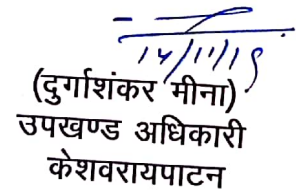 14/11/19
(दुर्गाशंकर मीना)
उपखण्ड अधिकारी
केशवरायपाटन